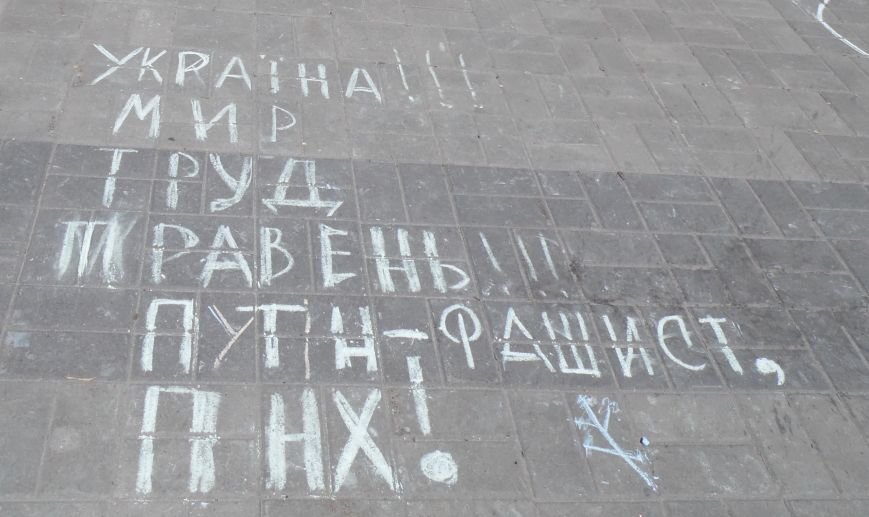 УКРАЇНА!!!
МИР
ТРУД
ТРАВЕНЬ!!!
ПУТІН-ФАШИСТ,
ПНХ!